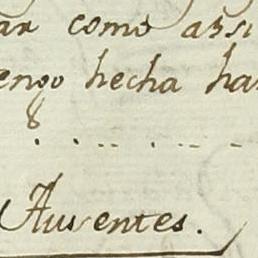 ar como absi
engo hecha ha
8
Ausentes.